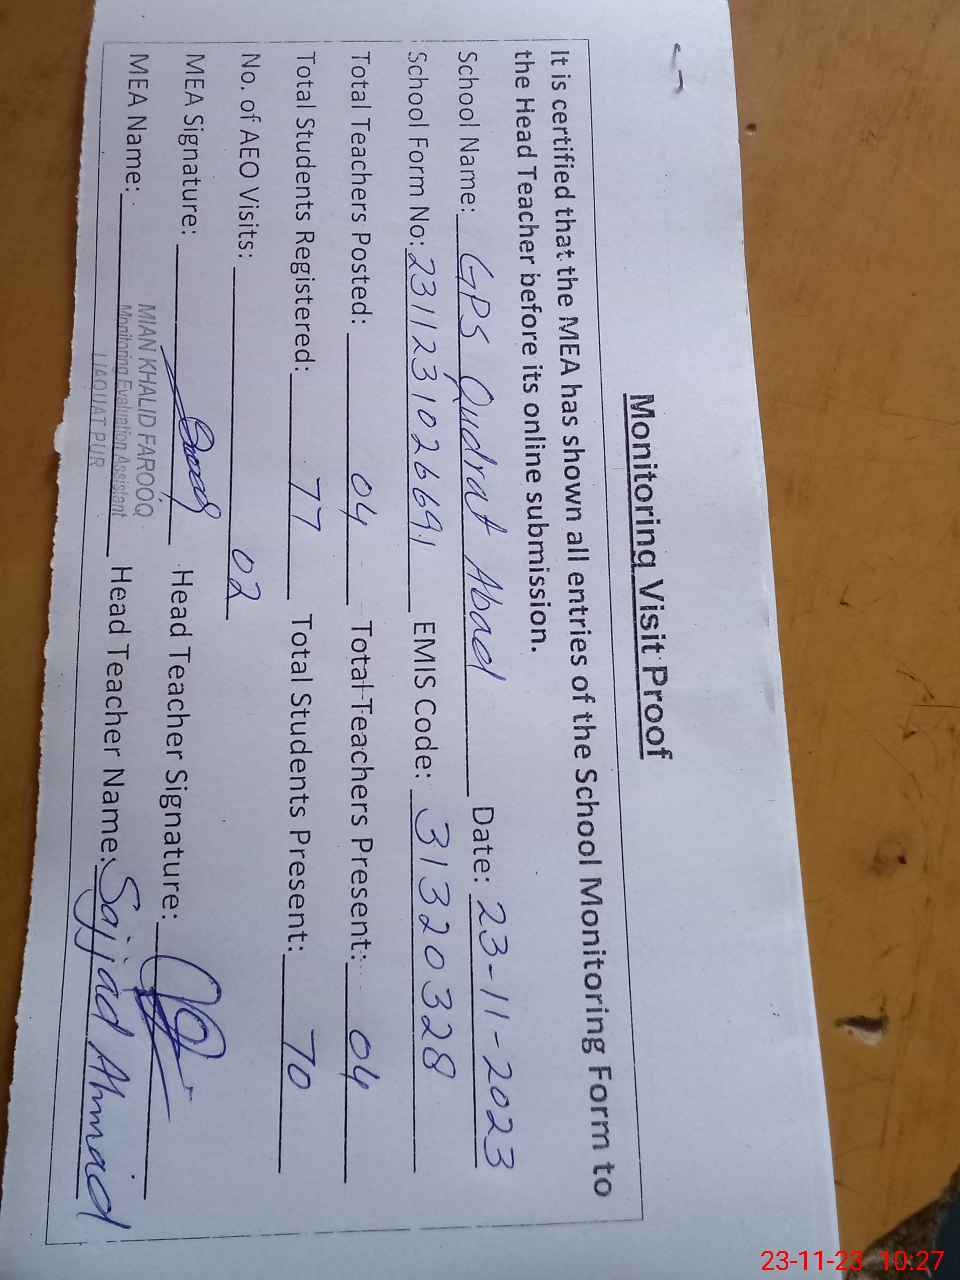 Monitoring Visit Proof
It is certified that the MEA has shown all entries of the School Monitoring Form to
the Head Teacher before its online submission.
School Name: GPS Qudrat Abad Date: 23-11-2023
School Form No: 2311231026691 EMIS Code: 31320328
Total Teachers Posted: 04 Total Teachers Present: 04
Total Students Registered: 77 Total Students Present: 70
No. of AEO Visits: 02
MEA Signature: Head Teacher Signature:
MEA Name: MIAN KHALID FAROOQ Head Teacher Name: Sajjad Ahmad
Monitoring Evaluation Assistant
LIAQUAT PUR
23-11-23 10:27